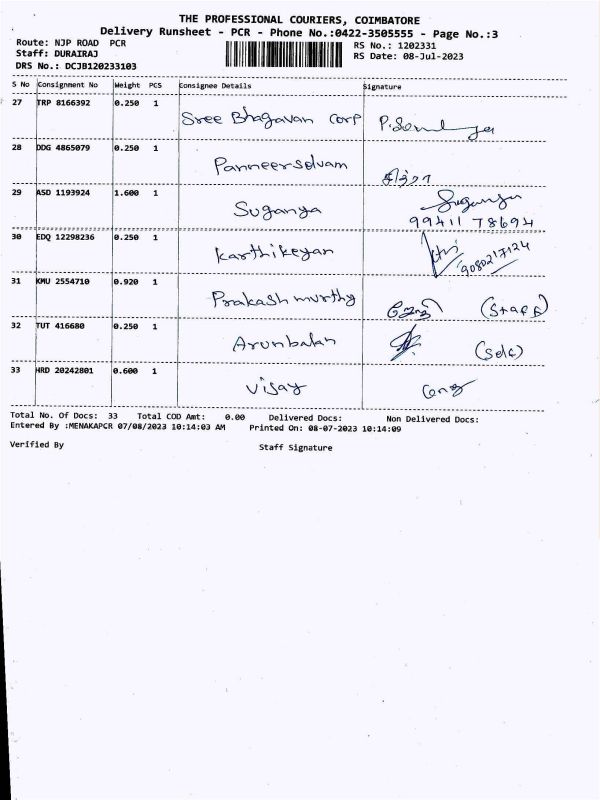 THE PROFESSIONAL COURIERS, COIMBATORE
Delivery Runsheet - PCR - Phone No.:0422-3505555 - Page No.:3
Route: NJP ROAD PCR
Staff: DURAIRAJ
DRS No.: DCJB120233103
RS No.: 1202331
RS Date: 08-Jul-2023
S No Consignment No Weight PCS Consignee Details Signature
27 TRP 8166392 0.250 1 Sree Bhagavan Corp
28 DDG 4865079 0.250 1 Panneerselvam சித்ரா
29 ASD 1193924 1.600 1 Suganya Suganya
99411 78694
30 EDQ 12298236 0.250 1 Karthikeyan 9080217124
31 KMU 2554710 0.920 1 Prakash murthy (Staff)
32 TUT 416680 0.250 1 Arunbalan (Self)
33 HRD 20242801 0.600 1 Vijay
Total No. Of Docs: 33 Total COD Amt: 0.00 Delivered Docs: Non Delivered Docs:
Entered By :MENAKAPCR 07/08/2023 10:14:03 AM Printed On: 08-07-2023 10:14:09
Verified By Staff Signature